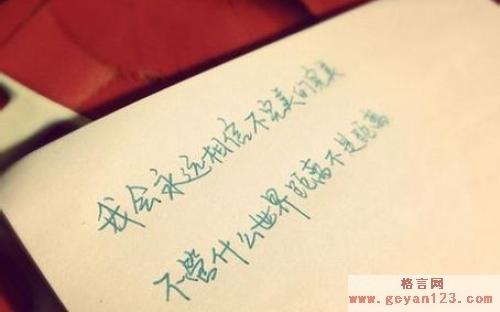 我会永远相信不完美的完美
不管什么世界距离不是距离
格言网
www.geyan123.com